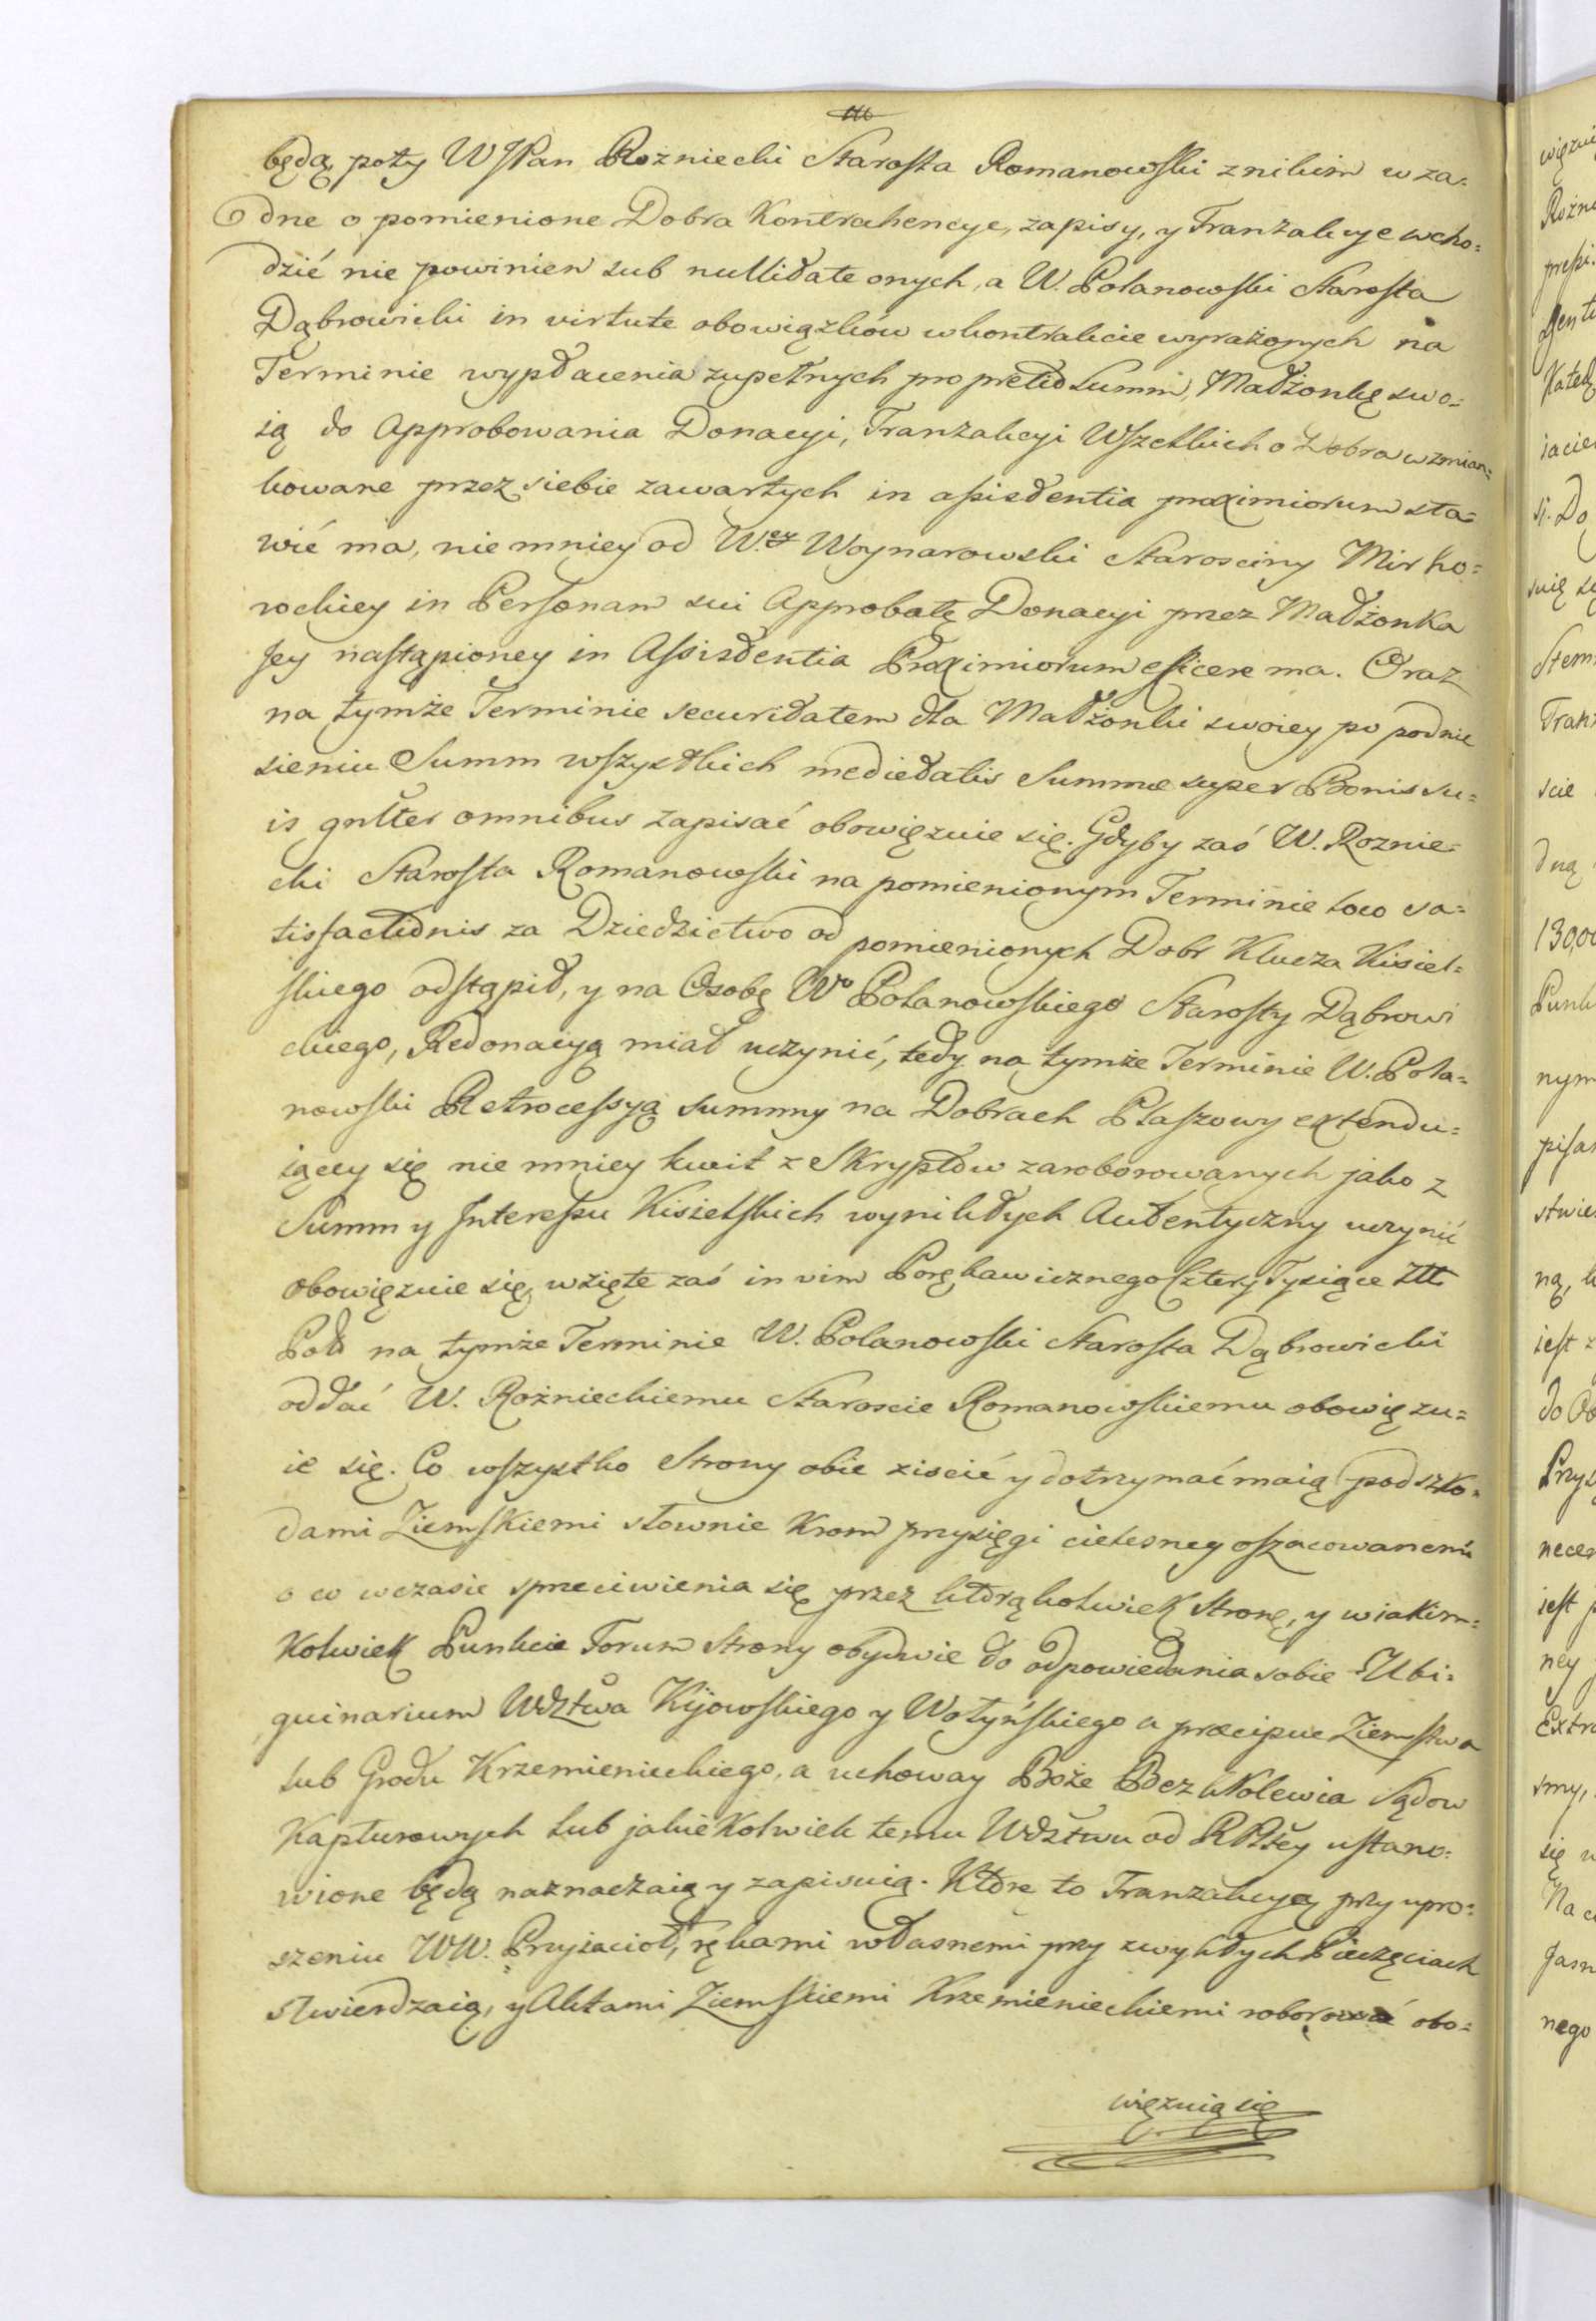 będą poty WJPan Rozniecki Starosta Romanowski znikim w za-
dne o pomienione Dobra Kontrahencye, zapisy, y Tranzakcye wcho=
dzić nie powinien sub nullitate onych, a W. Polanowski Starosta
Dąbrowicki in virtute obowiązków w kontrakcie wyrażonych na
Terminie wypłacenia zupełnych pro pretio Summ, Małżonkę swo=
ią do Approbowania Donacyi, Tranzakcyi Wszelkich o Dobra wzmian=
kowane przez siebie zawartych in assistentia proximiorum sta=
wić ma, niemniey od W.ey Woynarowski Starosciny Mir ho=
rockiey in Personam sui Approbatę Donacyi przez Małżonka
Jey nastąpioney in Assistentia Proximiorum efficere ma. Oraz
na tymże Terminie securitatem dla Małżonki swoiey po podnie
sieniu Summ wszystkich medietatis Summæ super Bonis su=
is gnlter omnibus zapisać obowięzuie się. Gdyby zaś W. Roznie=
cki Starosta Romanowski na pomienionym Terminie loco sa=
tisfactionis za Dziedzictwo od pomienionych Dobr Klucza Kisiel=
skiego odstąpił, y na Osobę Wo Polanowskiego Starosty Dąbrowi
ckiego, Redonacyą miał uczynić, tedy na tymże Terminie W. Pola=
nowski Retrocessyą summy na Dobrach Płaszowy extendu=
iącey się nie mniey kwit z Skryptow zaroborowanych jako z
Summ y Interessu Kisielskich wynikłych Autentyczny uczynić
obowięzuie się, wzięte zaś in vim Porękawicznego Cztery Tysiące Złł
Pol na tymże Terminie W. Polanowski Starosta Dąbrowicki
oddać W. Rożnieckiemu Staroscie Romanowskiemu obowięzu=
ie się. Co wszystko Strony obie ziscić y dotrzymać maią pod szko=
dami Ziemskiemi słownie Krom przysięgi cielesney oszacowanemi
o co wczasie sprzeciwienia się przez którąkolwiek Stronę, y w iakim=
Kolwiek Punkcie Forum Strony obydwie do odpowiedania sobie Ubi=
quinarium Wdztwa Kijowskiego y Wołyńskiego a præcipue Ziemstwa
lub Grodu Krzemienieckiego, a uchoway Boże Bezkrolewia Sądow
Kapturowych lub jakie Kolwiek temu Wdztwu od RPltey ustano=
wione będą naznaczaią y zapisuią. Które to Tranzakcyą przy upro=
szeniu WW. Przyiacioł, rękami własnemi przy zwykłych Pieczęciach
stwierdzaią, y Aktami Ziemskiemi Krzemienieckiemi roborować obo=
więzuią się